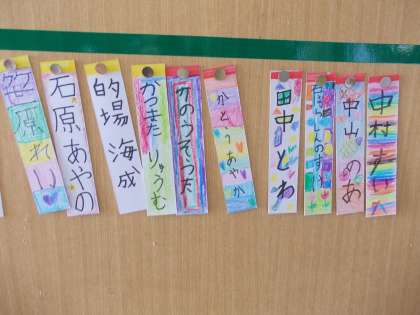 笹原れい
石原あやの
的場海成
かつまたりゅうむ
かのうそうた
かとうあやか
田中とわ
中山のあ
中村